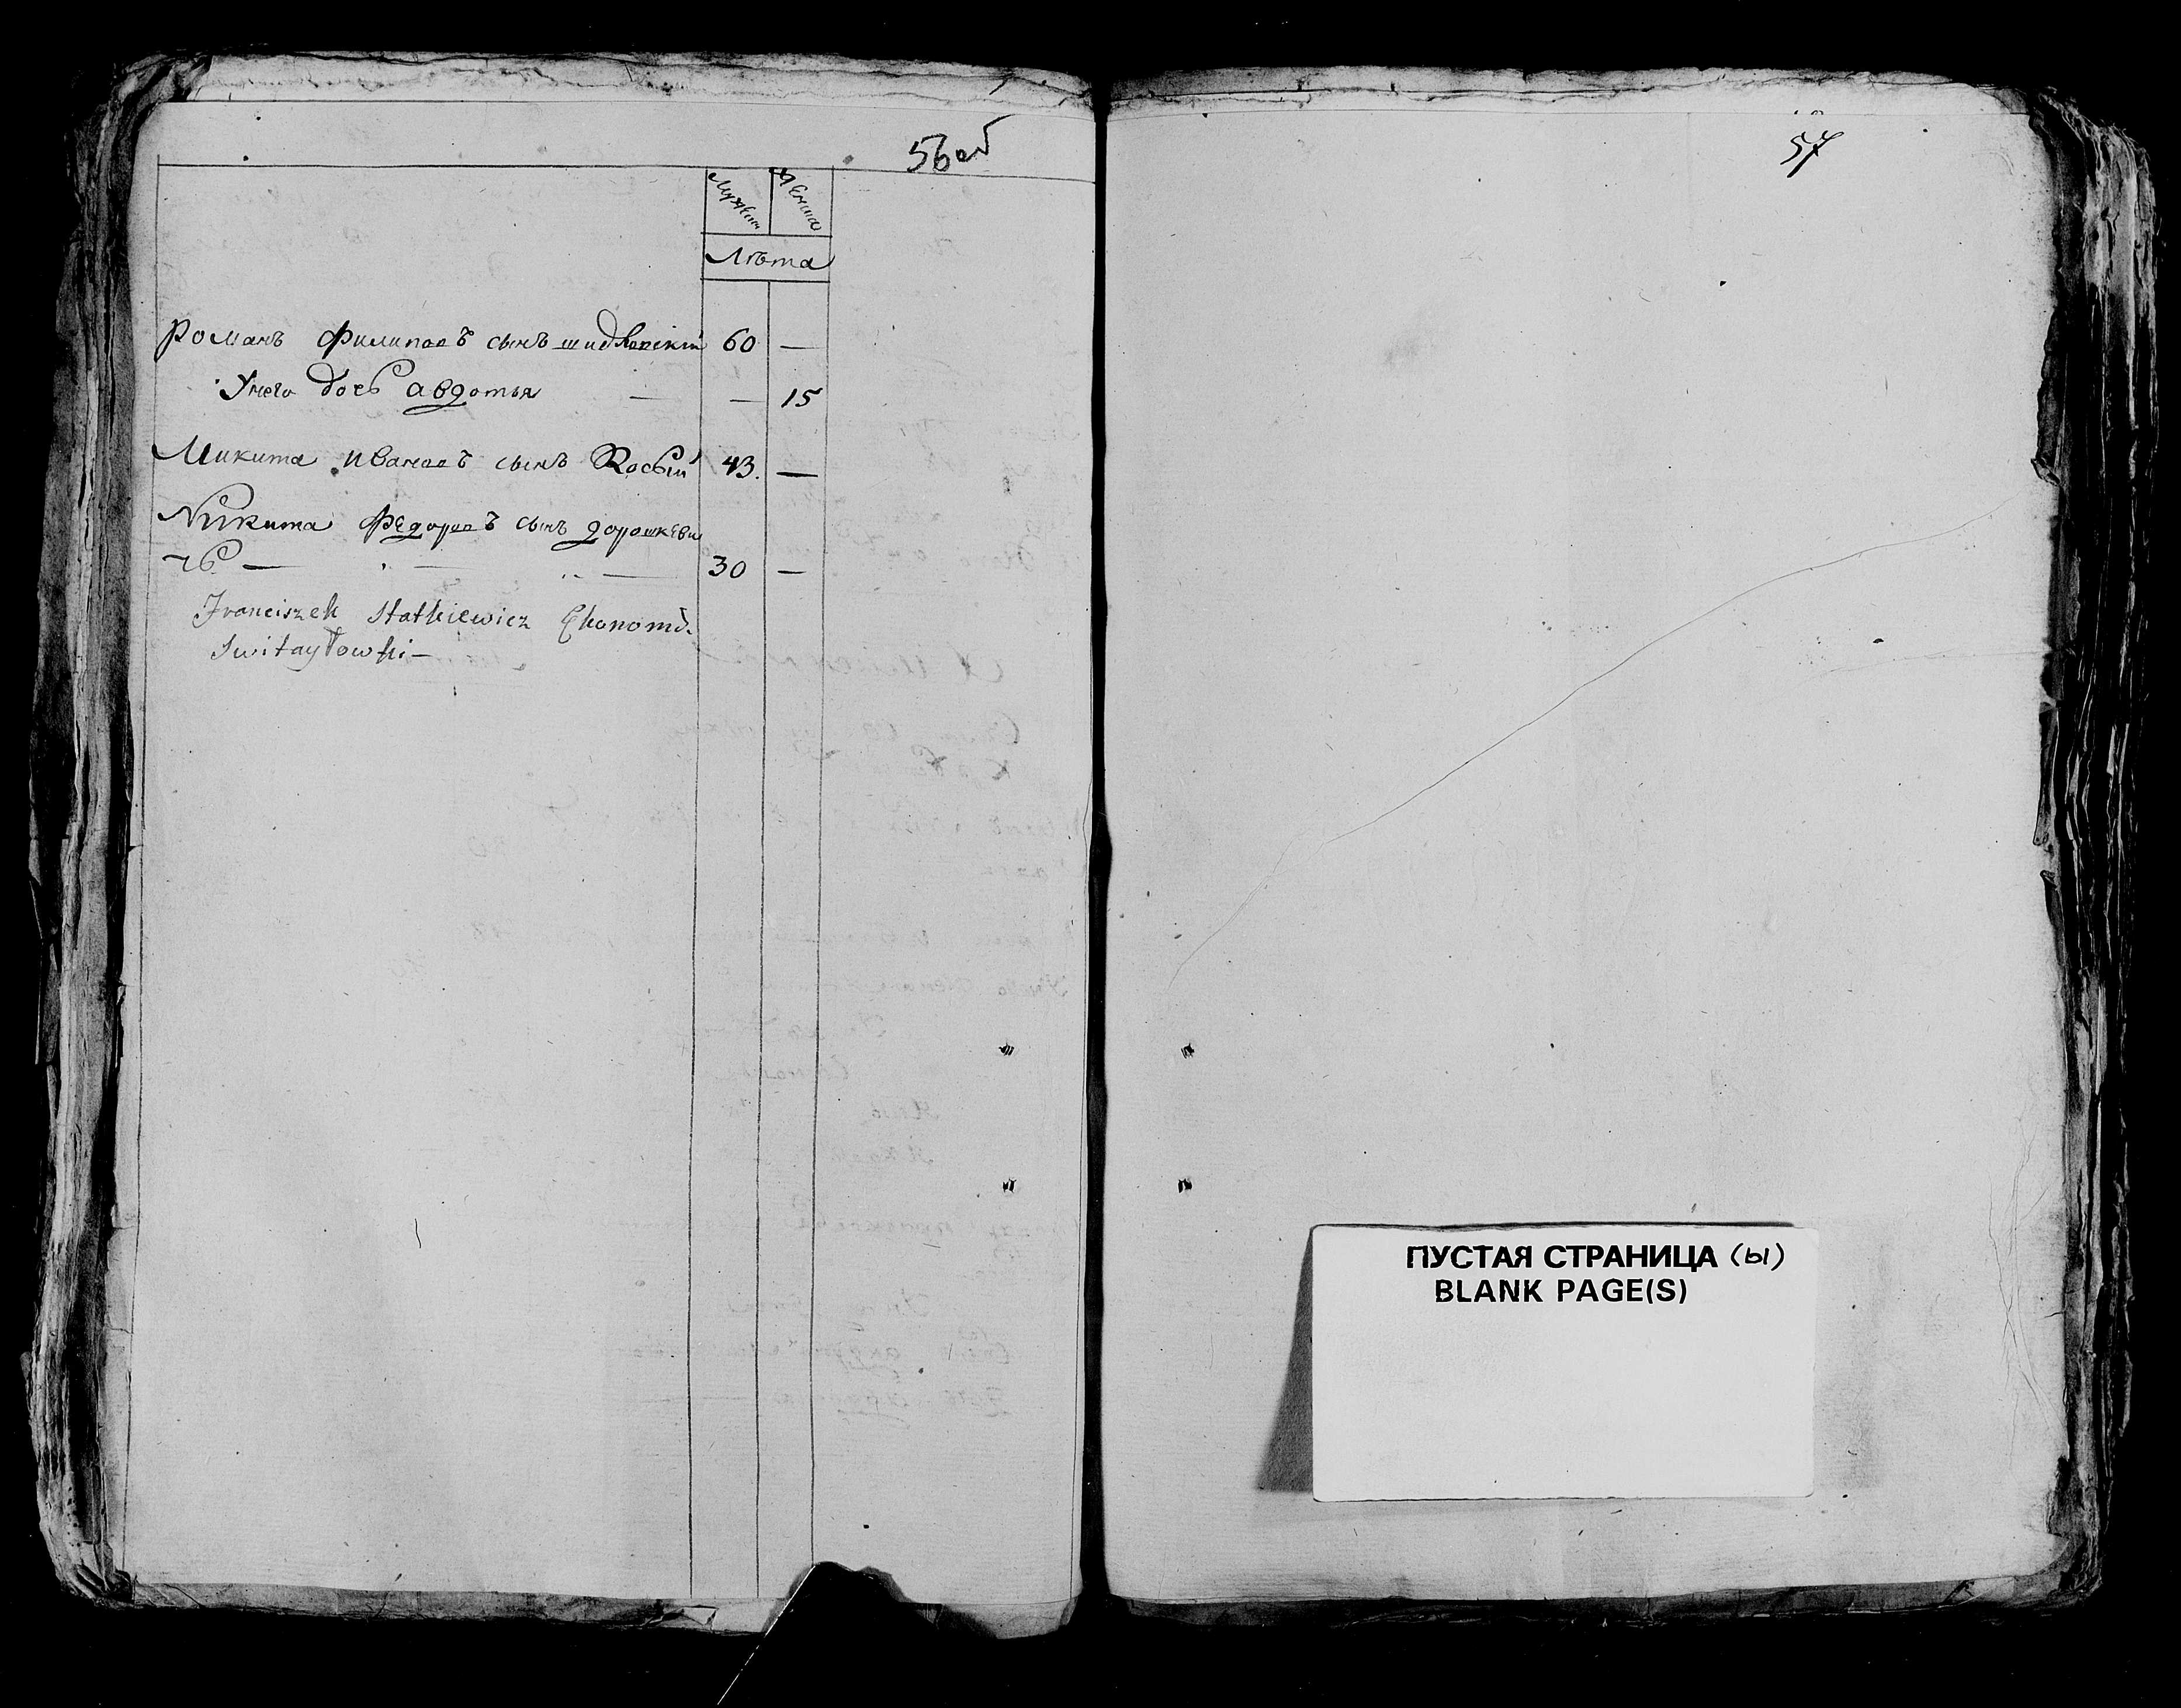 56 об
Мужескъ Женска
Лѣта
Романъ Филиповъ сынъ шидловскій 60 —
Унего дочь Авдотья — — 15
Микита Ивановъ сынъ Косый 43. —
Никита Федоровъ сынъ дорошкеви
чь — — — 30 —
Franciszek Statkiewicz Ekonom
Switayłowski —
57
ПУСТАЯ СТРАНИЦА (ы)
BLANK PAGE(S)